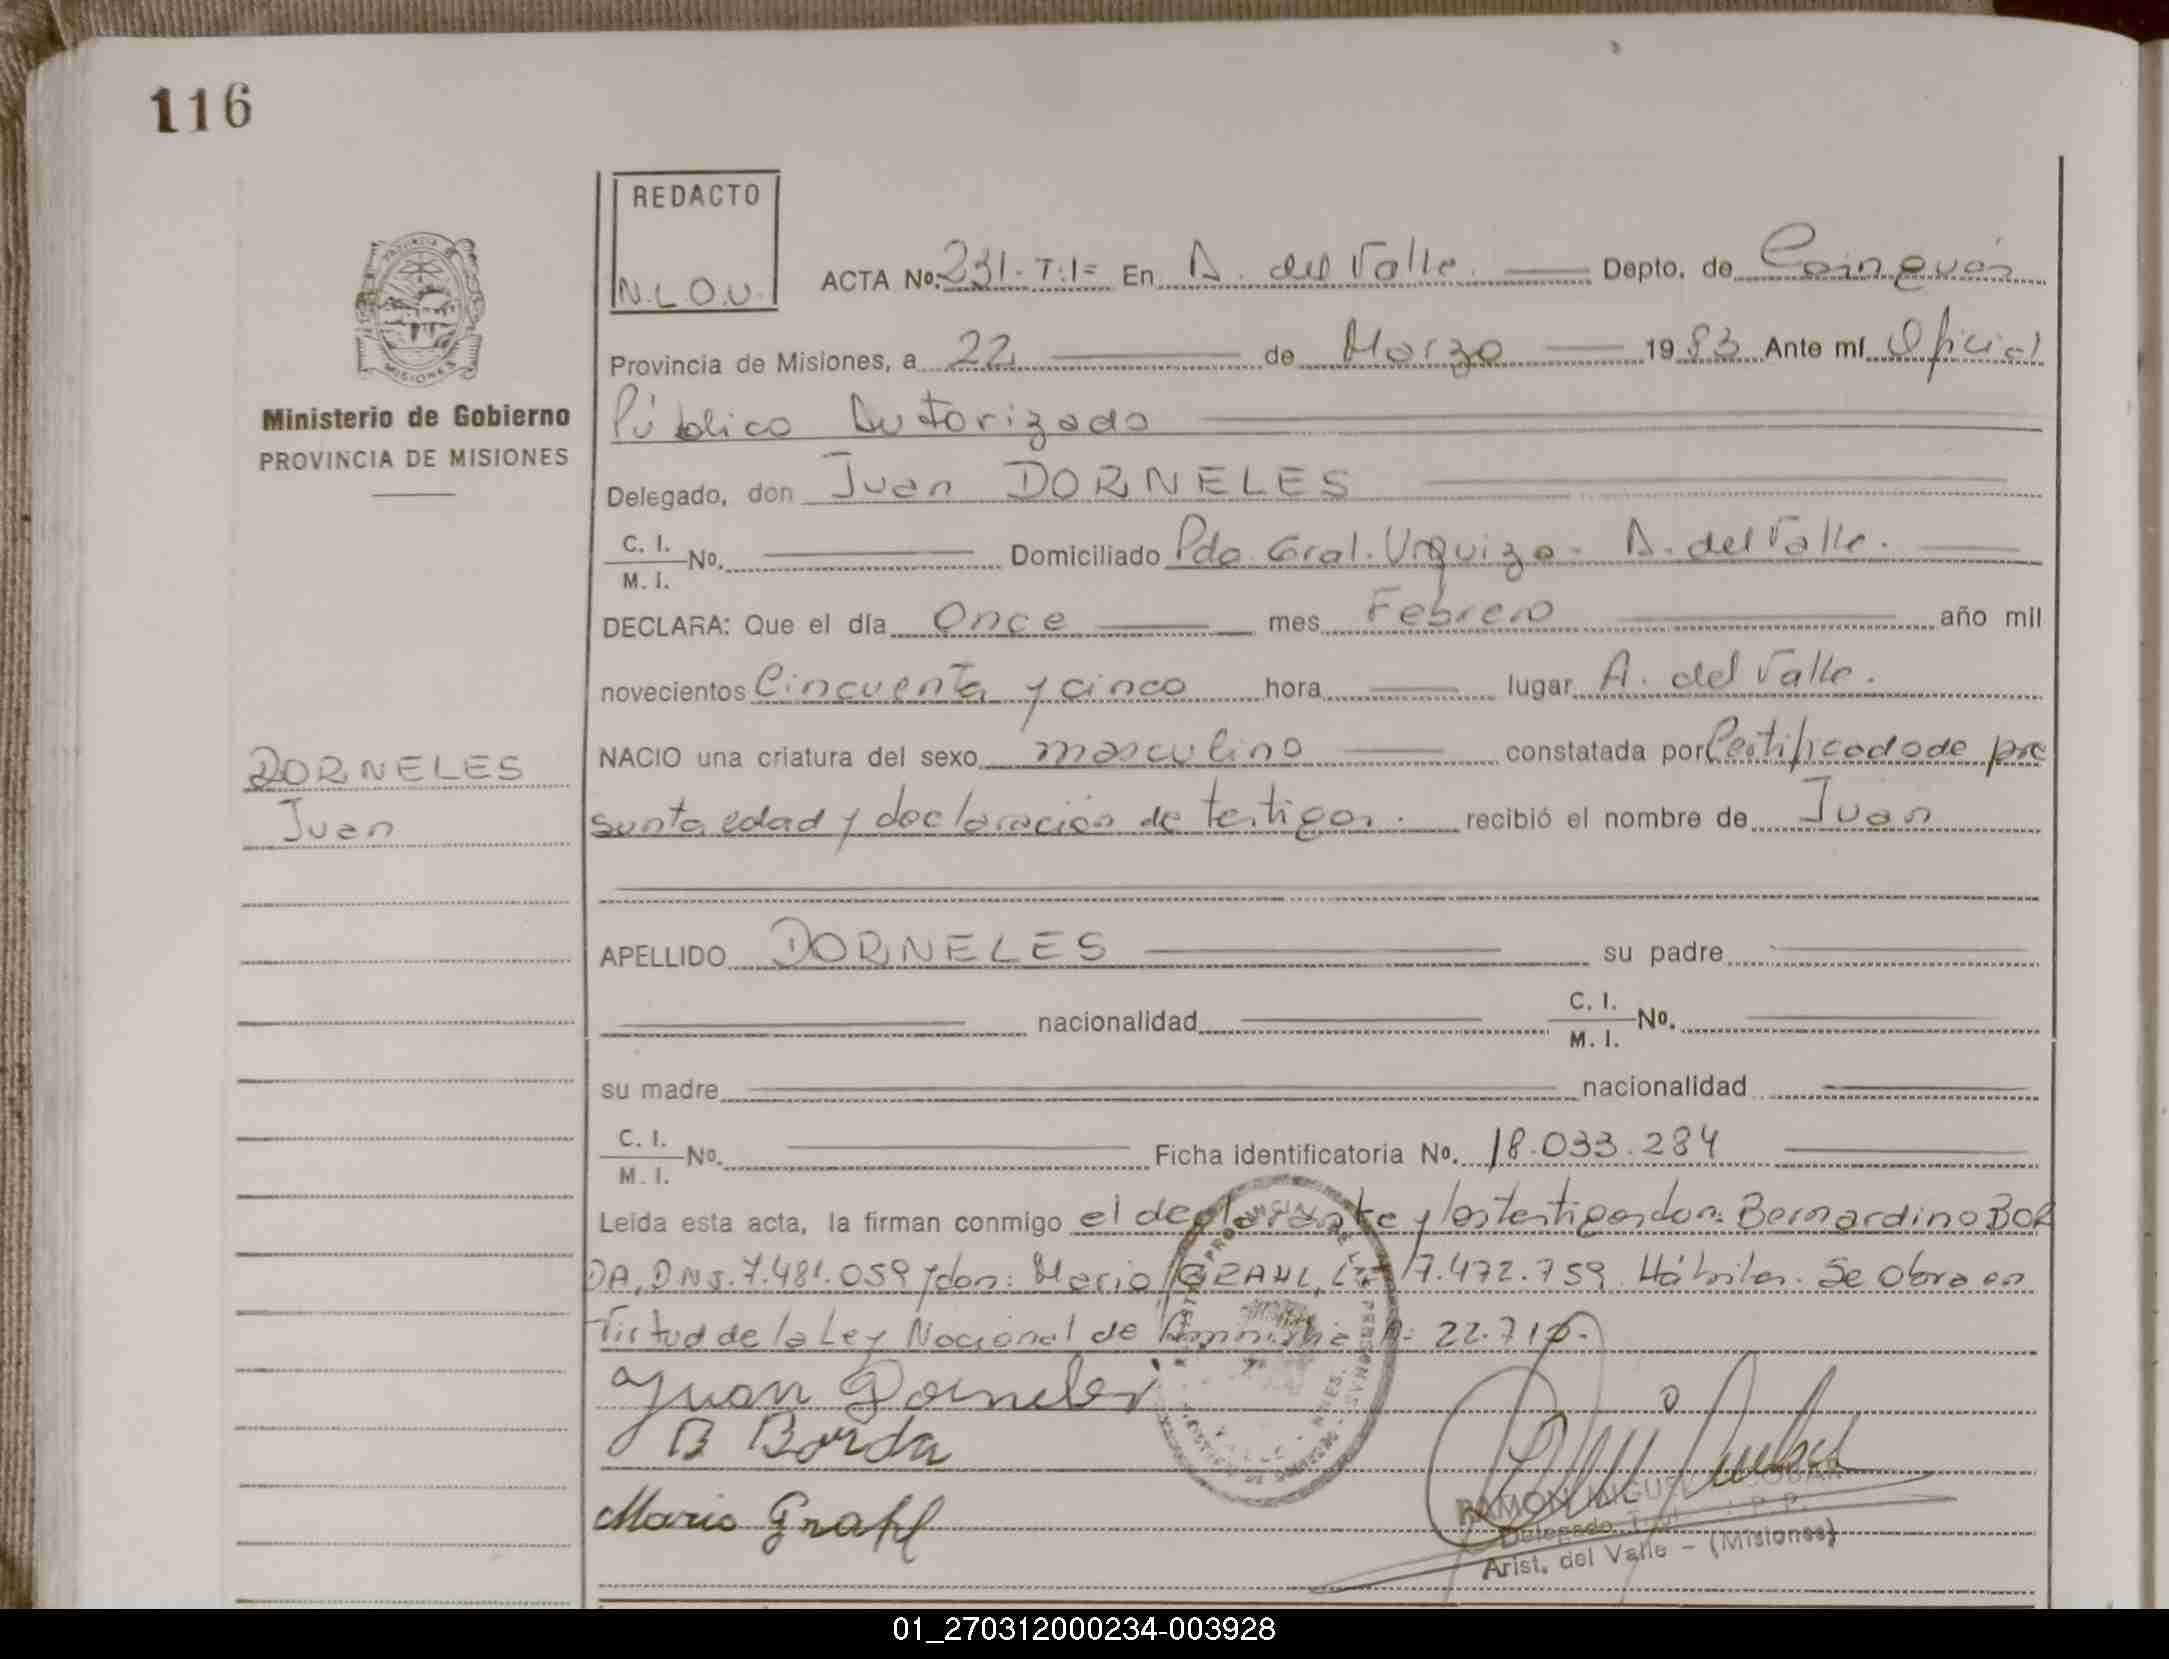 116
REDACTO
N.L.O.U.
PROVINCIA
MISIONES
Ministerio de Gobierno
PROVINCIA DE MISIONES
ACTA Nº. 231-T:1= En A. del Valle. Depto. de Cainguás
Provincia de Misiones, a 22 de Marzo 1983 Ante mí Oficial
Público Autorizado
Delegado, don Juan DORNELES
C. I.
M. I. Nº. Domiciliado Pdo. Gral. Urquiza - A. del Valle.
DECLARA: Que el día Once mes Febrero año mil
novecientos Cincuenta y cinco hora lugar A. del Valle.
NACIO una criatura del sexo masculino constatada por Certificado de pre
DORNELES
Juan
sunta edad y declaración de testigos. recibió el nombre de Juan
APELLIDO DORNELES su padre
nacionalidad C. I.
M. I. Nº.
su madre nacionalidad
C. I.
M. I. Nº. Ficha identificatoria Nº. 18.033.284
Leída esta acta, la firman conmigo el declarante y los testigos don: Bernardino BOR
DA, D.N.I. 7.481.059 y don: Mario GRAHL, L.E. 7.472.759 Hábiles. Se obra en
virtud de la Ley Nacional de Amnistía Nº 22.710.
Juan Dorneles
B Borda
Mario Grahl
RAMON MIGUEL
Delegado
Arist. del Valle - (Misiones)
01_270312000234-003928